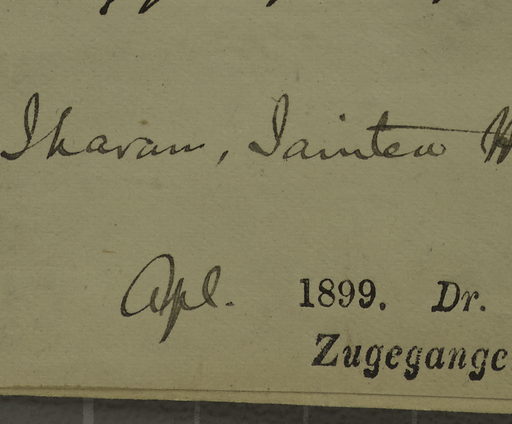 Jkaram, Jaintea H
Apl. 1899. Dr.
Zugegange